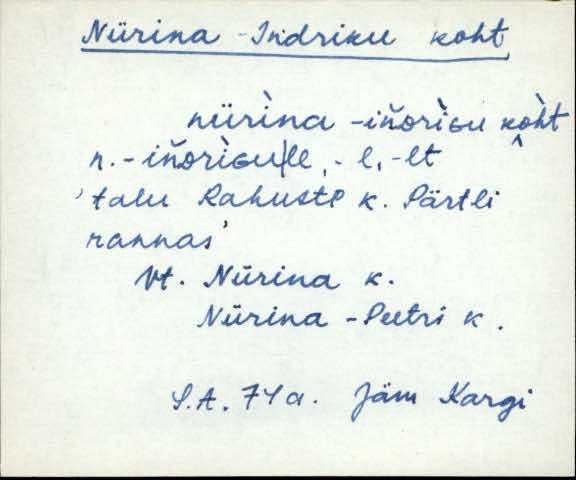 Nürina-Indriku koht
nürìna-iňᴅrìɢu kòht
n.-iňᴅrìɢu|le, -l, -lt
'talu Rahuste k. Pärtli
rannas'
Vt. Nürina k.
Nürina-Peetri k.
S.A. 74a. Jäm Kargi